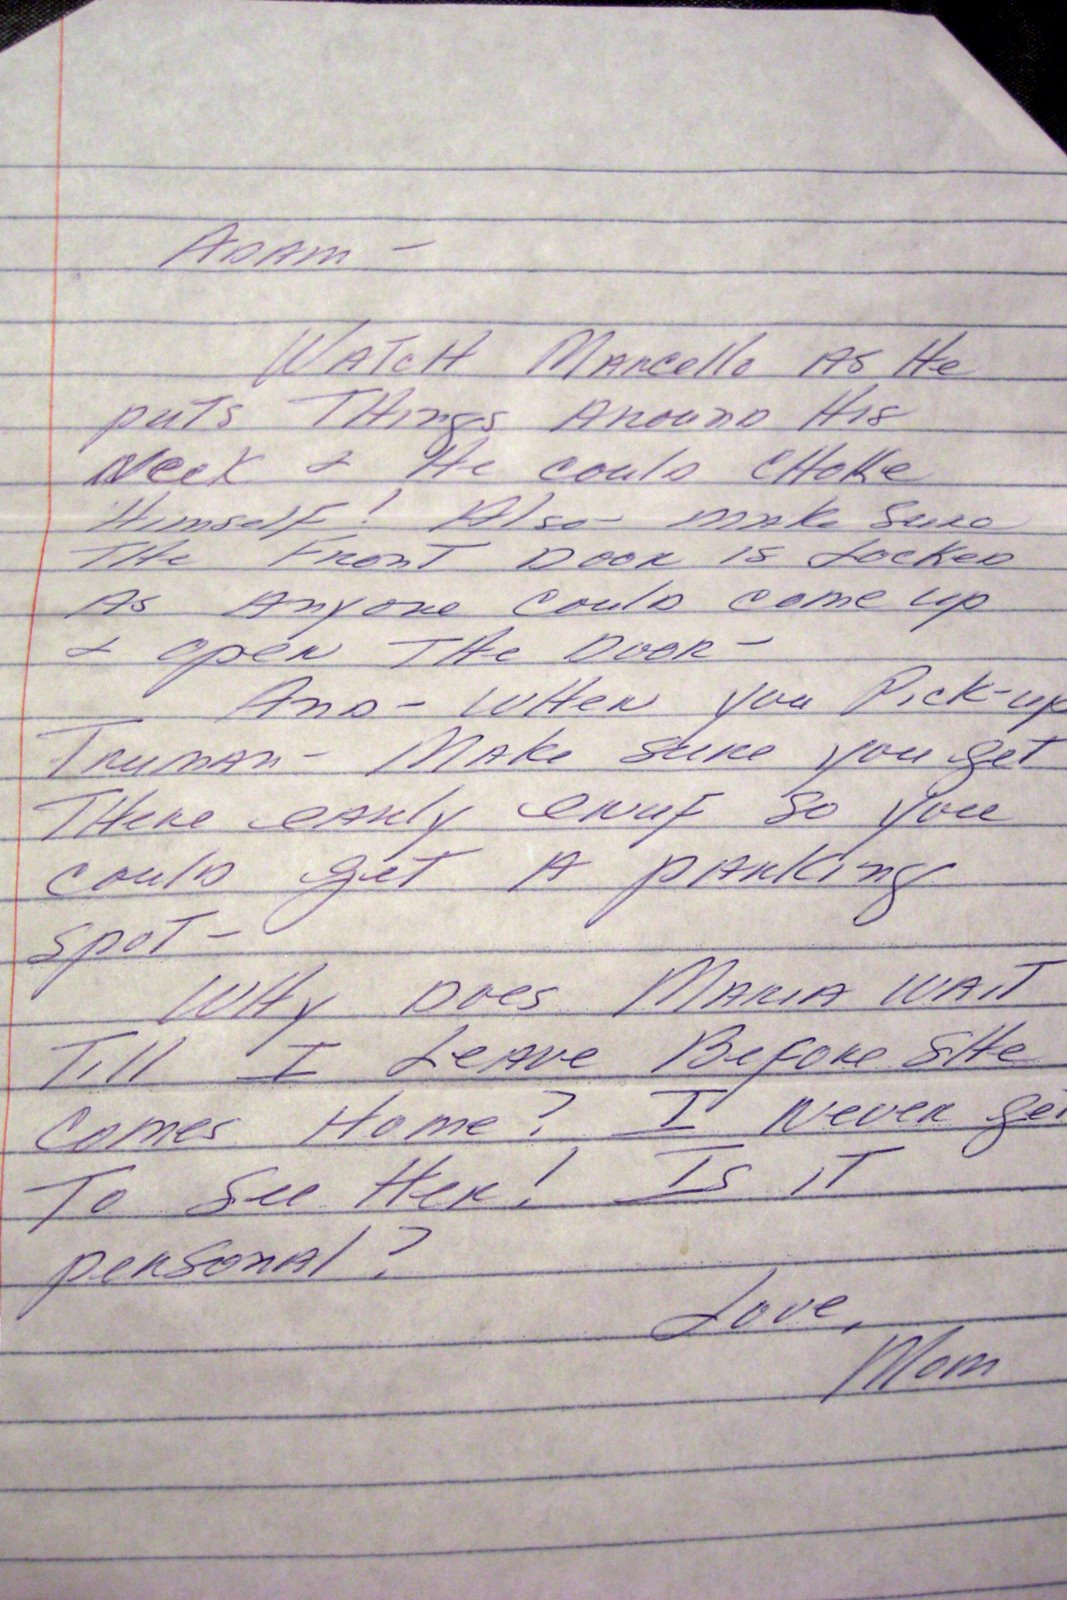 Adam -
Watch Marcello as He
puts Things Around His
Neck & He could CHoke
Himself! Also - make Sure
THe Front Door is Locked
As Anyone could come up
& open THe Door -
And - WHen you Pick-up
Truman - Make Sure you get
THere early enuf so you
could get A parking
spot -
WHy Does Maria wait
Till I Leave Before SHe
comes Home? I Never get
To see Her! Is iT
personal?
Love,
Mom